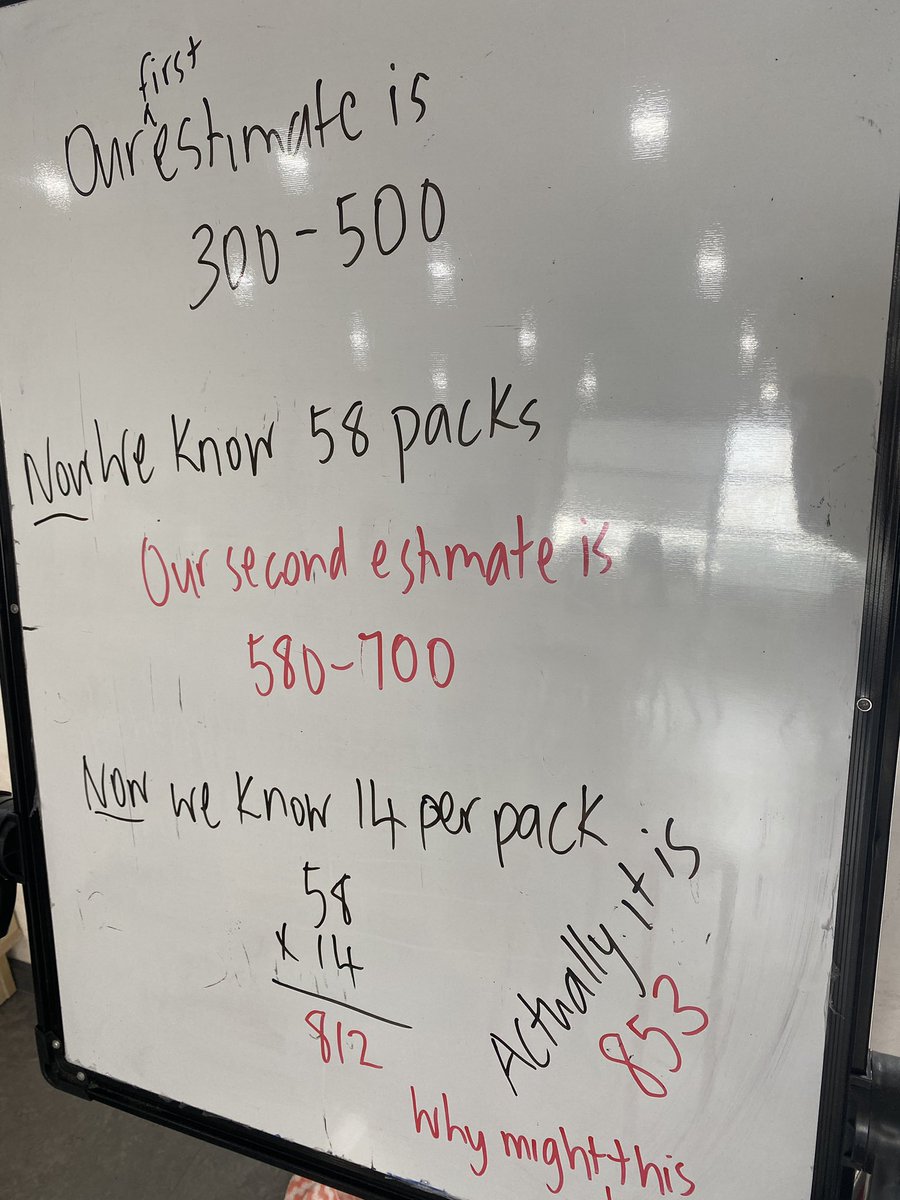 first
Our ^ estimate is
300-500
Now We Know 58 packs
Our second estmate is
580-700
Now we know 14 per pack
58
x 14
812
Actually it is
853
Why might this